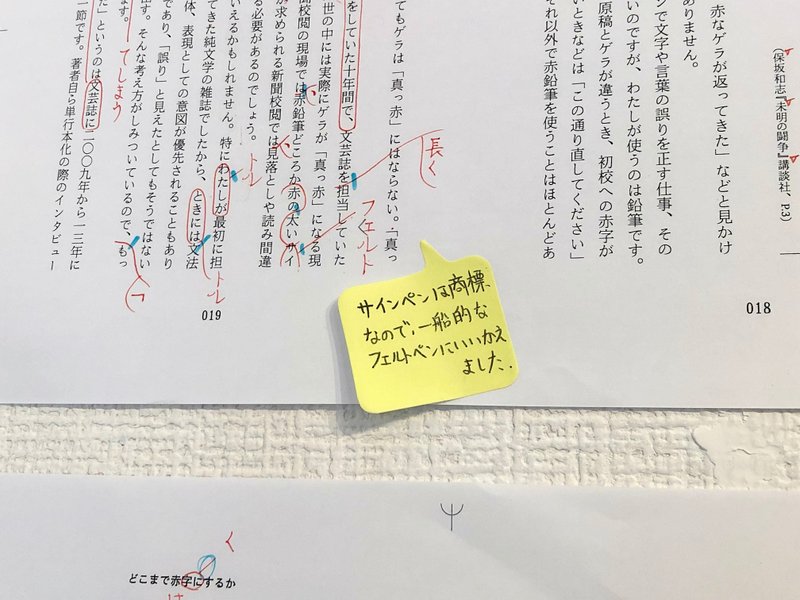 (保坂和志『未明の闘争』講談社、P.3)
赤なゲラが返ってきた」などと見かけ
ありません。
ンで文字や言葉の誤りを正す仕事、その
いのですが、わたしが使うのは鉛筆です。
原稿とゲラが違うとき、初校への赤字が
いときなどは「この通り直してください」
それ以外で赤鉛筆を使うことはほとんどあ
018
てもゲラは「真っ赤」にはならない。「真っ
長く
をしていた十年間で、文芸誌を担当していた
フェルト
世の中には実際にゲラが「真っ赤」になる現
校閲の現場では赤鉛筆どころか赤の太いサイ
が求められる新聞校閲では見落としや読み間違
る必要があるのでしょう。
トル
いえるかもしれません。特にわたしが最初に担
てきた純文学の雑誌でしたから、ときには文法
トル
体、表現としての意図が優先されることもあり
であり、「誤り」と見えたとしてもそうではない
出す。そんな考え方がしみついているので、もっ
てしまう
た」というのは文芸誌に二〇〇九年から一三年に
一節です。著者自ら単行本化の際のインタビュー
019
サインペンは商標
なので、一船的な
フェルトペンにいいかえ
ました.
く
どこまで赤字にするか
は